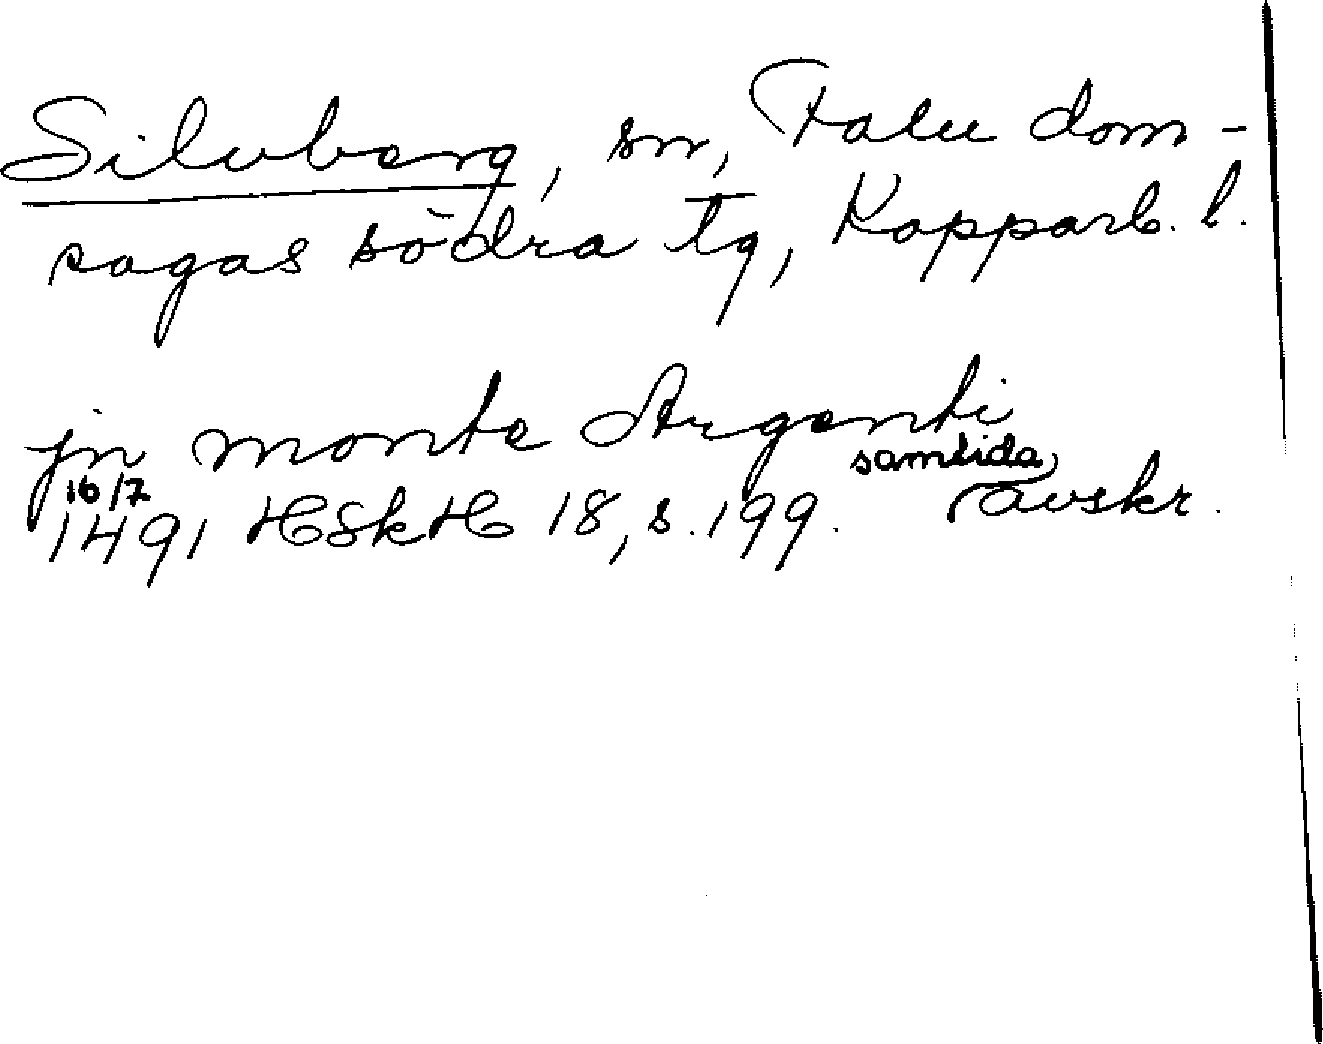 Silvberg, sn, Falu dom-
sagas södra tg, Kopparb. l.
jn monte Argenti
16/7 samtida
1491 HSkH 18, s. 199. avskr.